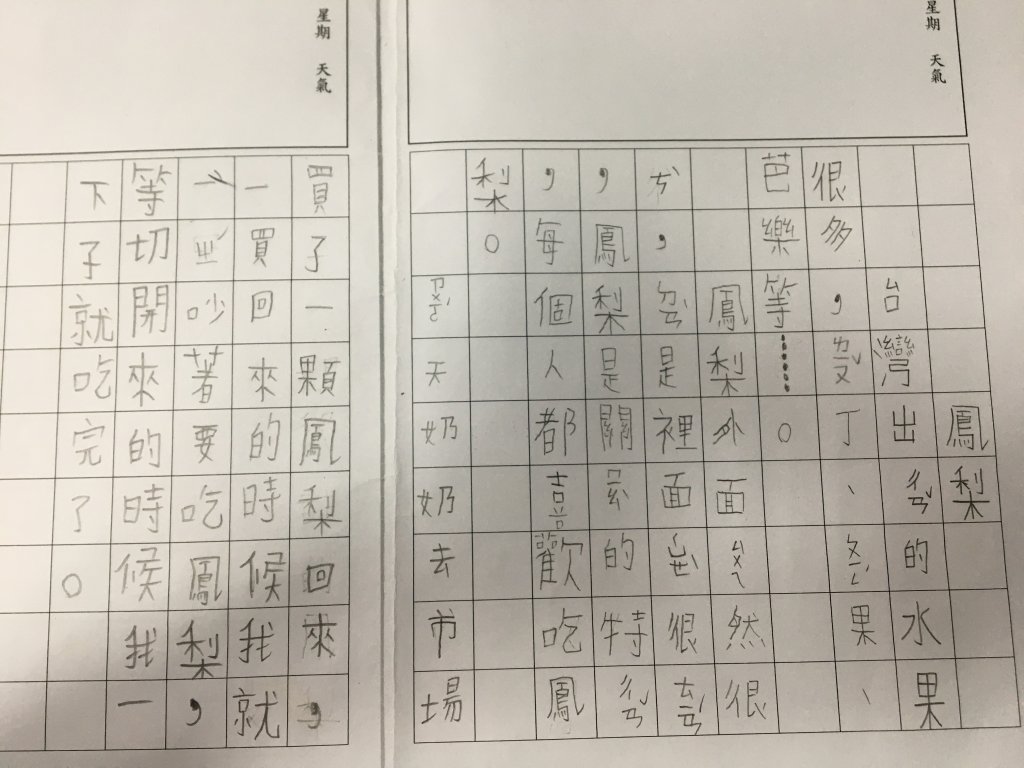 星期 天氣
鳳梨
台灣出ㄔㄢˇ的水果
很多，丁、果、
芭樂等……。
鳳梨外面ㄙㄨㄟ然很
，是裡面很
，鳳梨是關的特ㄔㄢˇ
，每個人都喜歡吃鳳
梨。
ㄗㄨㄛˊ天奶奶去市場
星期 天氣
買了一顆鳳梨回來，
一買回來的時候我就
一吵著要吃鳳梨，
等切開來的時候我一
下子就吃完了。